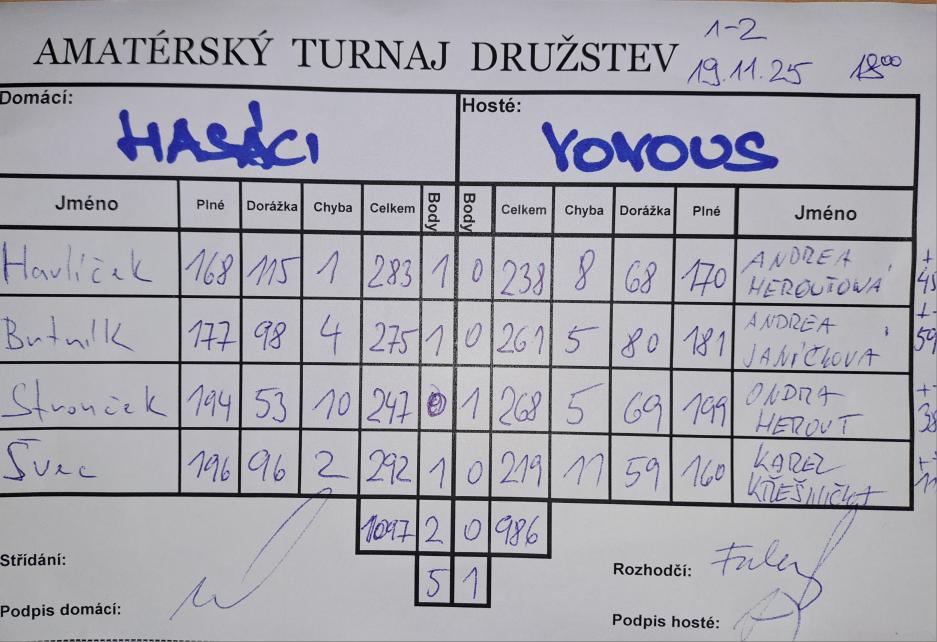 1-2
AMATÉRSKÝ TURNAJ DRUŽSTEV 19.11.25 18⁰⁰
Domácí: Hosté:
HASÁCI YOYOUS
Jméno Plné Dorážka Chyba Celkem Body Body Celkem Chyba Dorážka Plné Jméno
Havlíček 168 115 1 283 1 0 238 8 68 170 ANDREA HEROUTOVÁ
177 98 4 275 1 0 261 5 80 181 ANDREA JANÍČKOVÁ
194 53 10 247 0 1 268 5 69 199 ONDRA HEROUT
Švec 196 96 2 292 1 0 219 11 59 160 KAREL
1097 2 0 986
5 1
Střídání: Rozhodčí:
Podpis domácí: Podpis hosté: